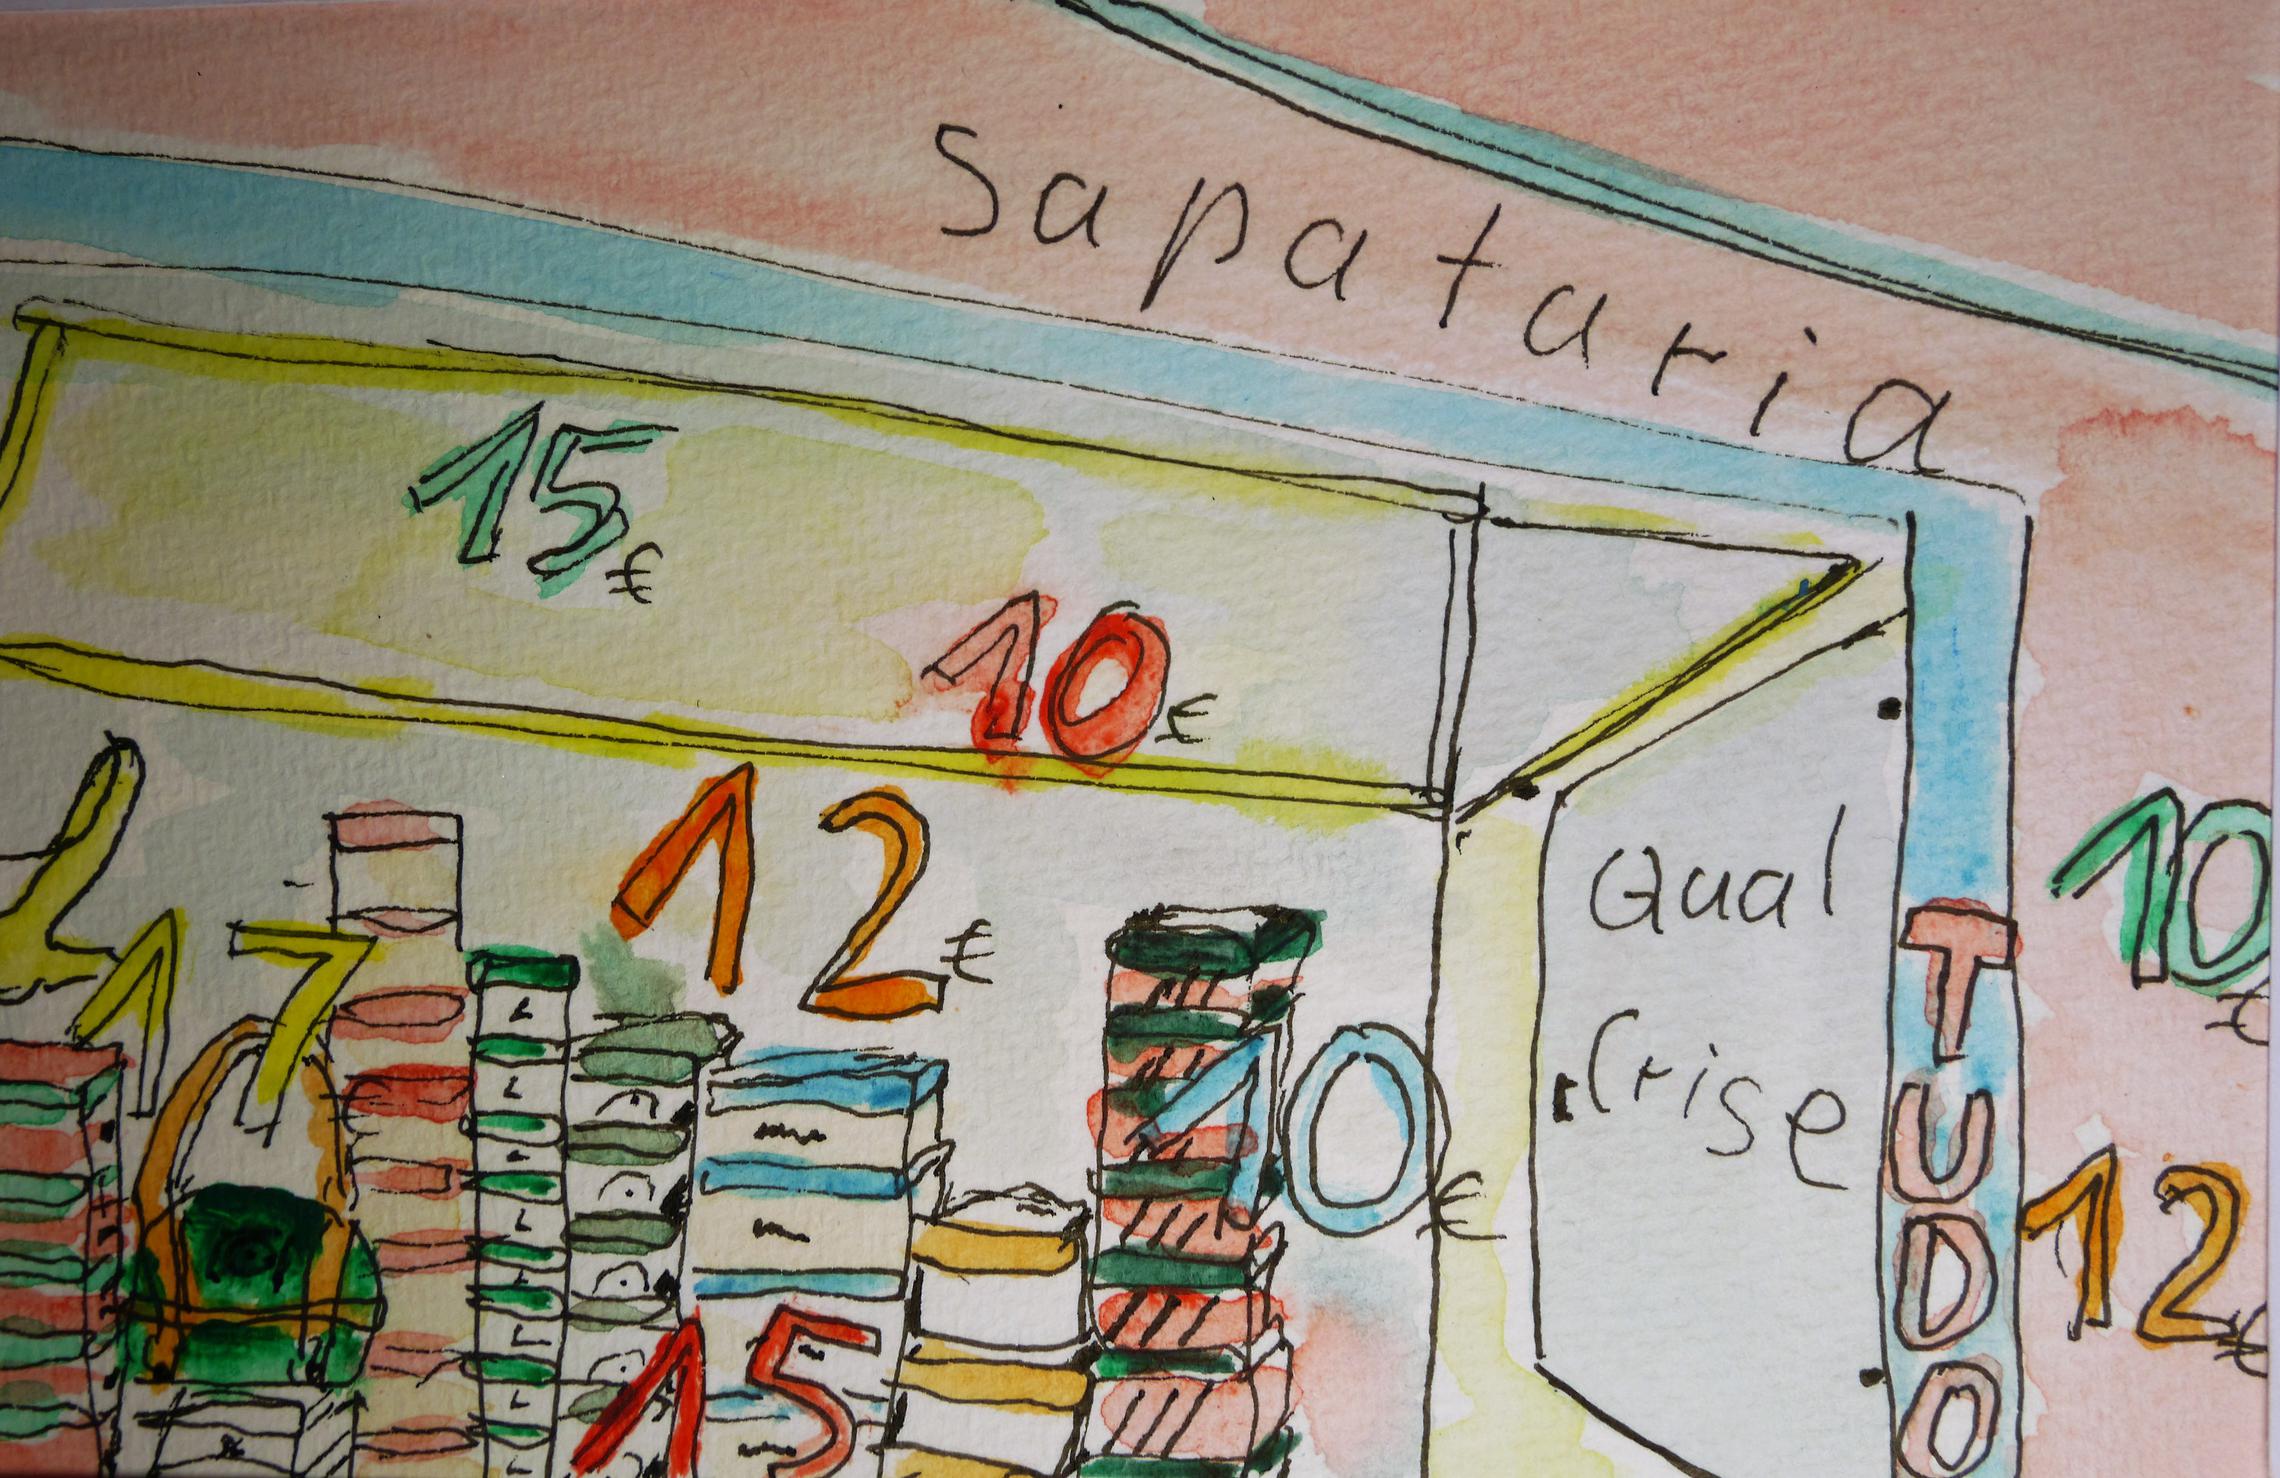 Sapataria
15€
10€
12€
17
10€
15
Qual
Crise
TUDO
10€
12€